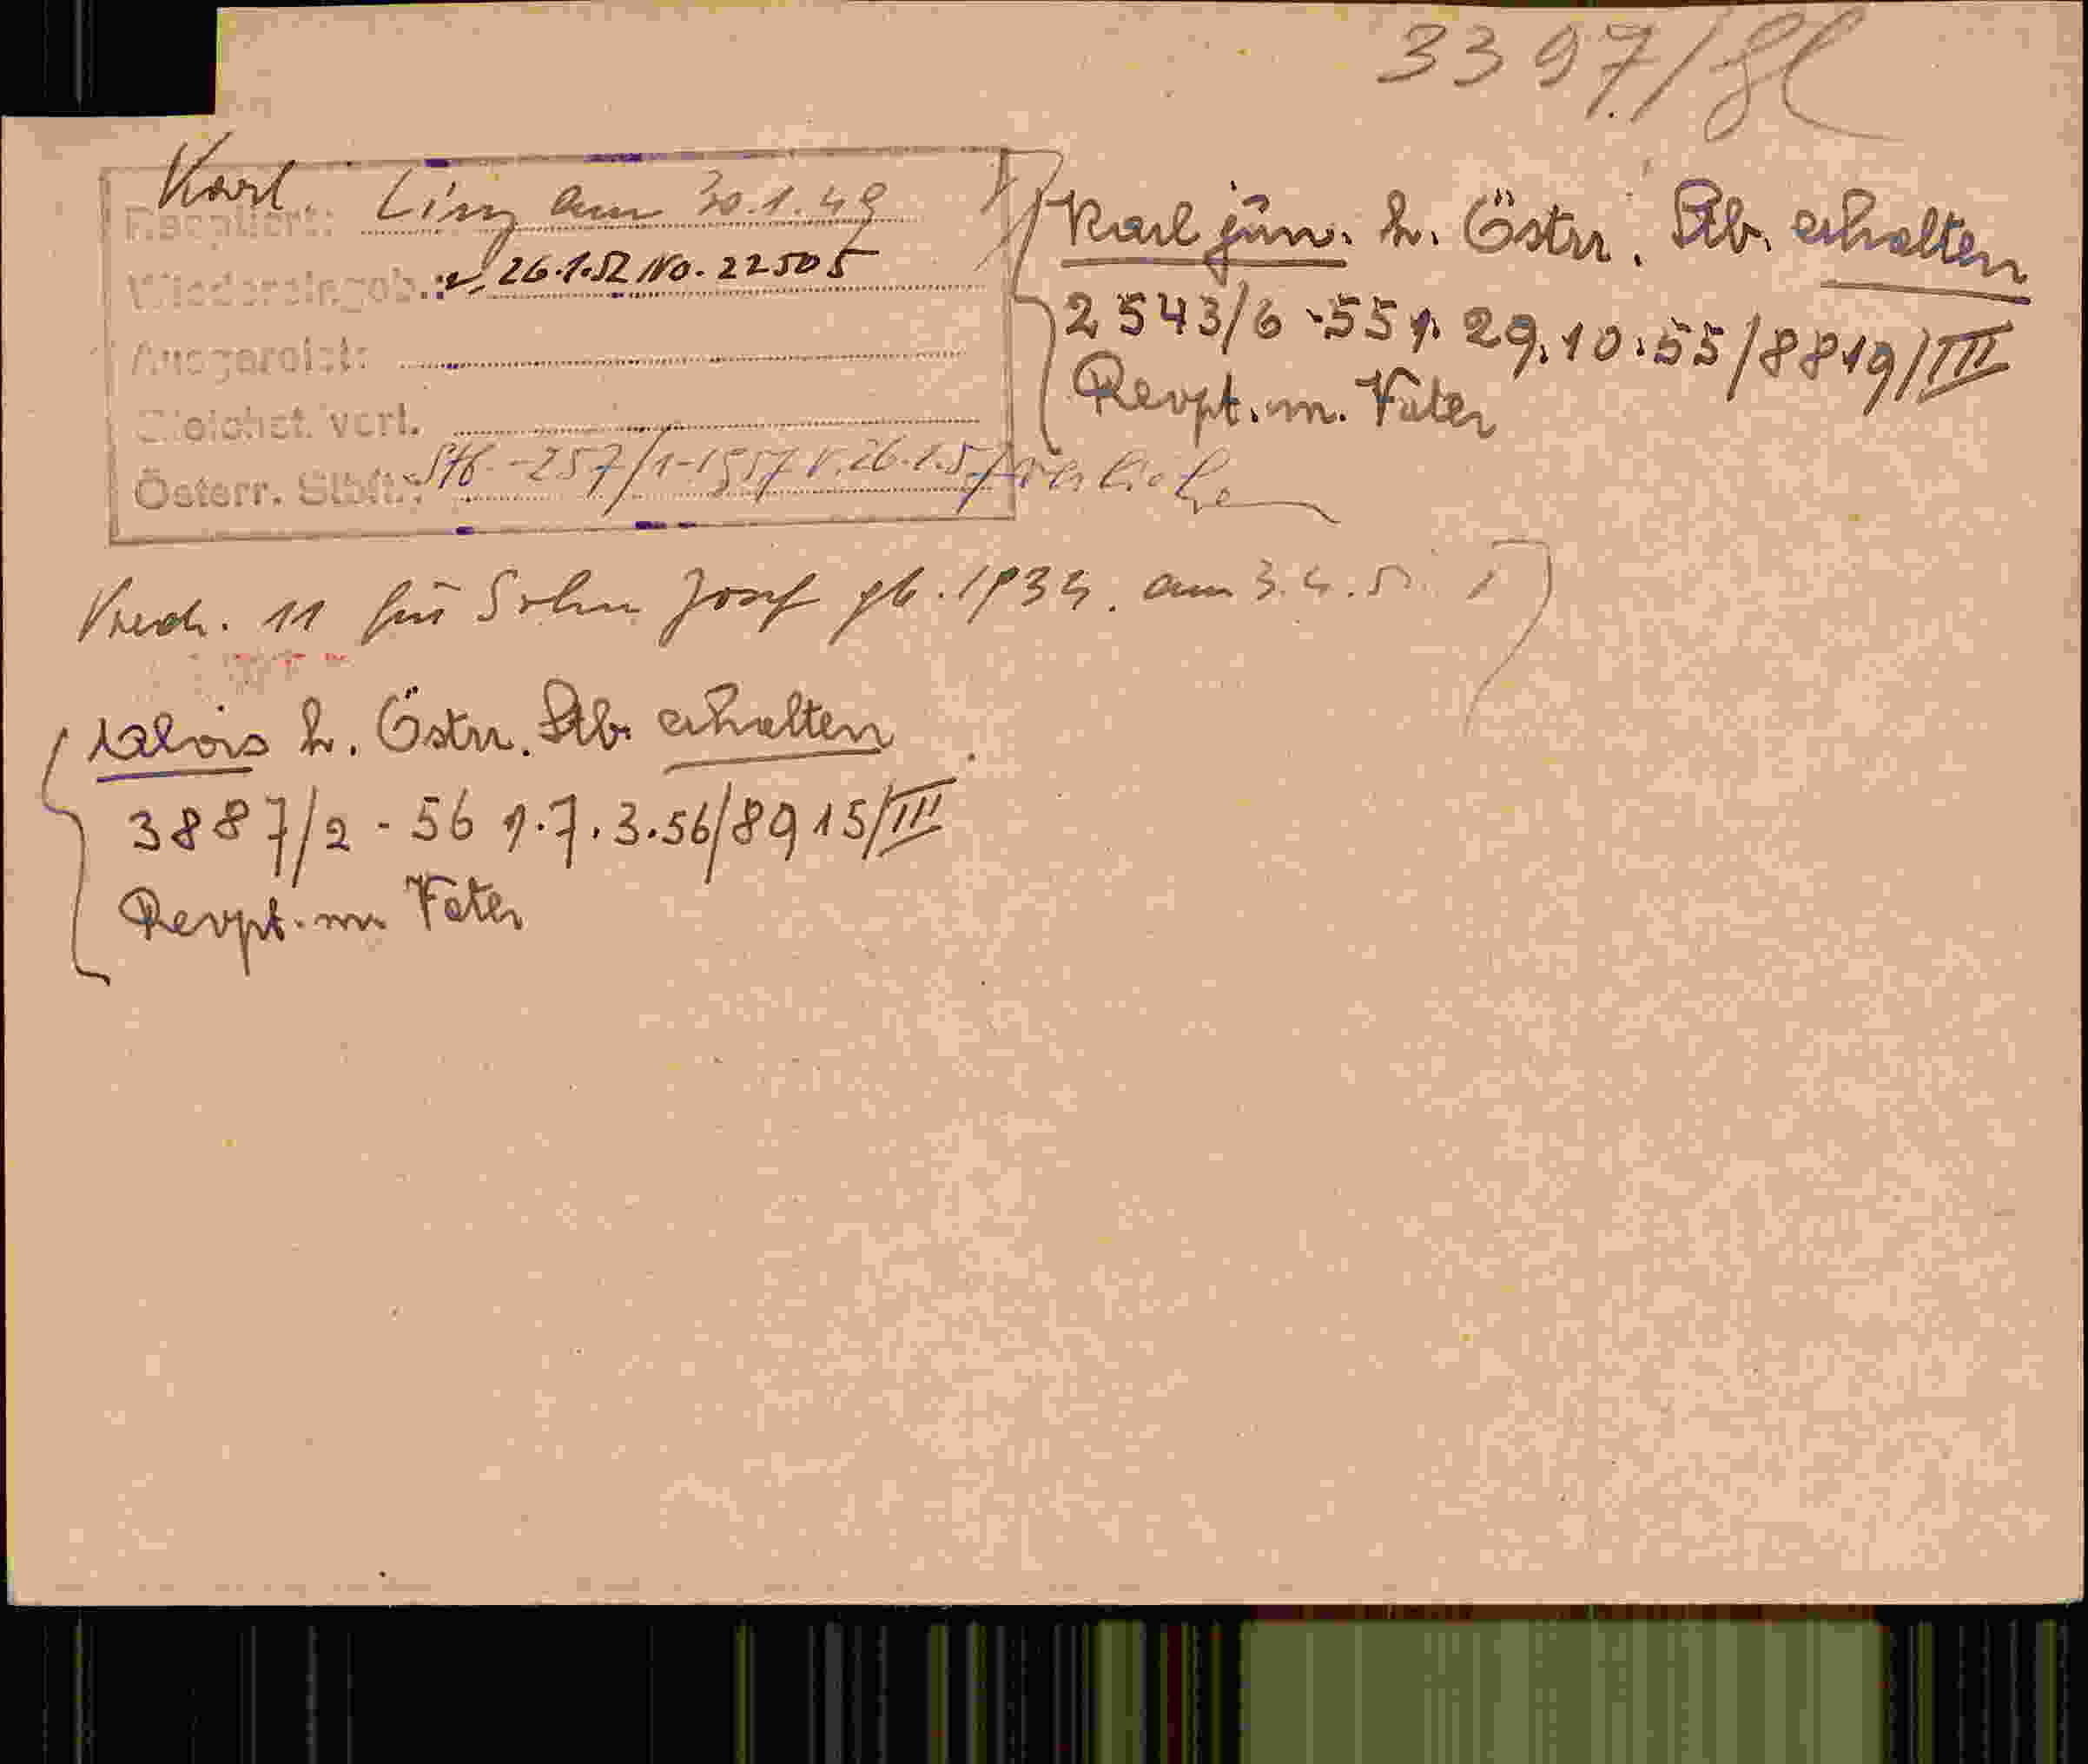 3397/
Karl.
Linz am 30.1.49
Wiedereingeb.: 26.1.52 No. 22505
Ausgereist:
Gleichst. verl.
Österr. Stbft.: Stb.-257/1-1957 v. 26.1.57 verliehen
Karl jun. h. Östrr. Stb. erhalten
2543/6-55 v. 29.10.55/8819/III
Revpt. m. Vater
11 für Sohn Josef gb. 1934. am 3.4.
Alois h. Östrr. Stb. erhalten
3887/2-56 v. 7.3.56/8915/III
Revpt. m Vater